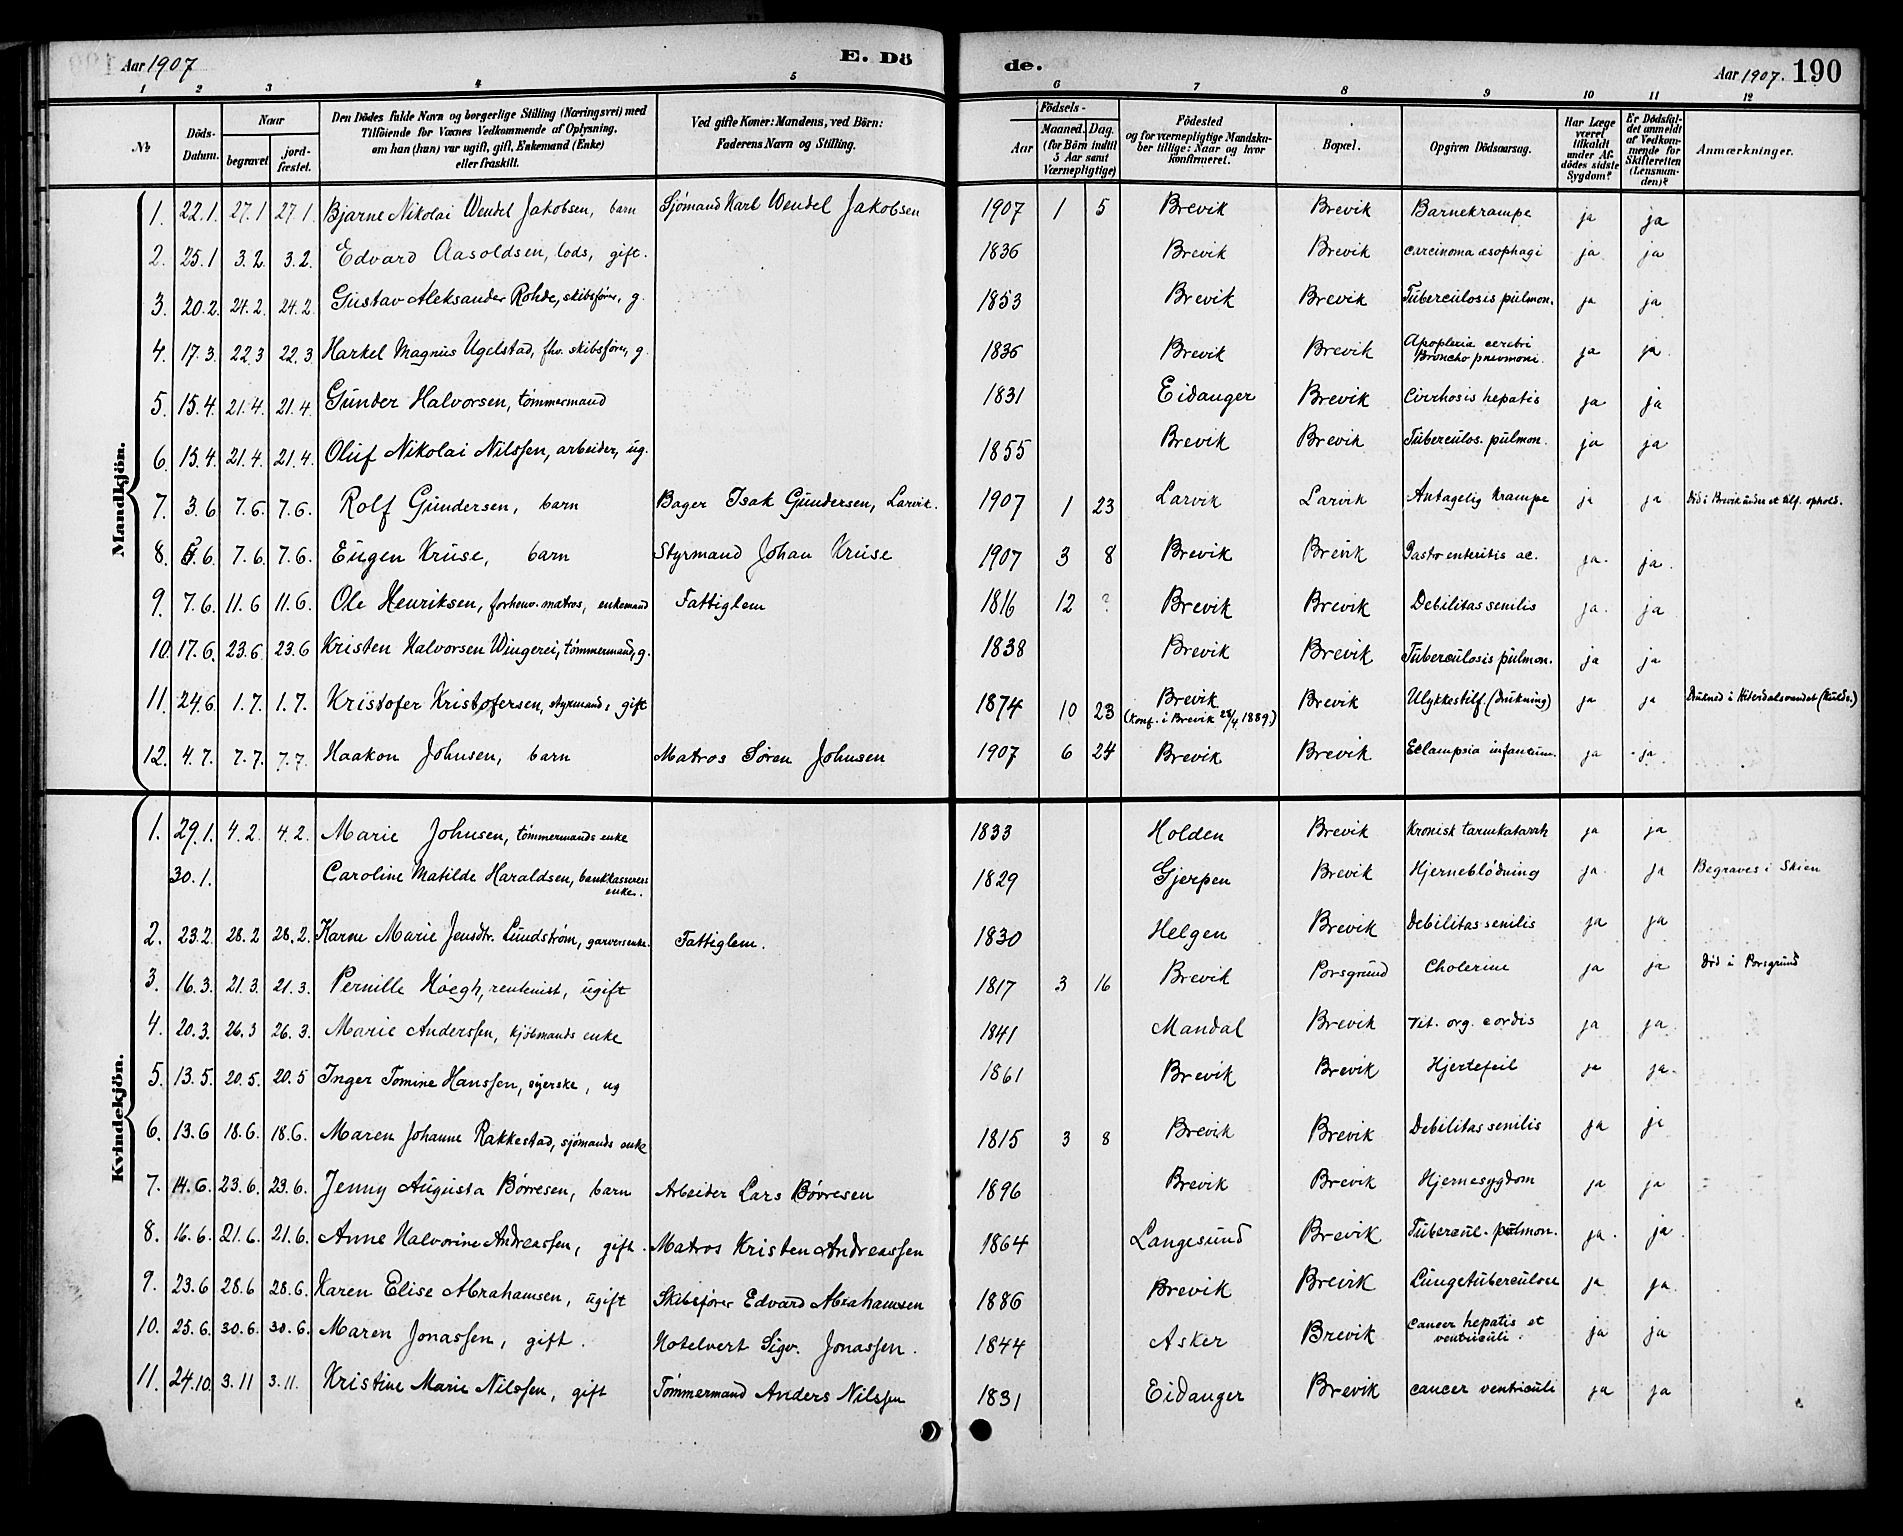 Aar 1907 E. Dö de. Aar 1907. 190
1 2 3 4 5 6 7 8 9 10 11 12
№ Döds-Datum. Naar begravet jordfæstet. Den Dödes fulde Navn og borgerlige Stilling (Næringsvei) med Tilföiende for Voxnes Vedkommende af Oplysning, om han (hun) var ugift, gift, Enkemand (Enke) eller fraskilt. Ved gifte Koner: Mandens, ved Börn: Faderens Navn og Stilling. Födsels- Aar Maaned. Dag. (for Börn indtil 5 Aar samt Værnepligtige) Födested og for værnepligtige Mandskaber tillige: Naar og hvor konfirmeret. Bopæl. Opgiven Dödsaarsag. Har Læge været tilkaldt under Afdödes sidste Sygdom? Er Dödsfaldet anmeldt af Vedkommende for Skifteretten (Lensmanden)? Anmærkninger.
Mandkjön.
1. 22.1. 27.1 27.1. Bjarne Nikolai Wendel Jakobsen, barn Sjömand Karl Wendel Jakobsen 1907 1 5 Brevik Brevik Barnekrampe ja ja
2. 25.1 3.2. 3.2. Edvard Aasoldsen, lods, gift. 1836 Brevik Brevik carcinoma æsophagi ja ja
3. 20.2. 24.2. 24.2. Gustav Aleksander Rohde, skibsfører, g. 1853 Brevik Brevik Tuberculosis pulmon. ja ja
4. 17.3. 22.3 22.3 Harkel Magnus Ugelstad, fhv. skibsfører, g. 1836 Brevik Brevik Apoplexia cerebri Broncho pnevmoni. ja ja.
5. 15.4. 21.4. 21.4 Gunder Halvorsen, tømmermand 1831 Eidanger Brevik Cirrhosis hepatis ja ja
6. 15.4. 21.4. 21.4. Oluf Nikolai Nilssen, arbeider, ug. 1855 Brevik Brevik Tuberculos. pulmon. ja ja
7. 3.6 7.6. 7.6. Rolf Gundersen, barn Bager Isak Gundersen, Larvik. 1907 1 23 Larvik Larvik Antagelig krampe ja ja Död i Brevik under et tilf. ophold.
8. 5.6. 7.6. 7.6. Eugen Kruse, barn Styrmand Johan Kruse 1907 3 8 Brevik Brevik Gastroenteritis ac. ja. ja.
9. 7.6. 11.6 11.6. Ole Henriksen, forhenv. matros, enkemand Fattiglem 1816 12 ? Brevik Brevik Debilitas senilis ja. ja
10. 17.6. 23.6. 23.6 Kristen Halvorsen Wingerei, tømmermand, g. 1838 Brevik Brevik Tuberculosis pulmon. ja ja
11. 24.6. 1.7. 1.7. Kristofer Kristofersen, styrmand, gift 1874 10 23 Brevik (Konf. i Brevik 28/4 1889.) Brevik Ulykkestilf. (Drukning) ja ja Druknet i Hiterdalsvandet
12. 4.7. 7.7. 7.7. Haakon Johnsen, barn Matros Søren Johnsen 1907 6 24 Brevik Brevik Eclampsia infantum. ja ja
Kvindekjön.
1. 29.1. 4.2. 4.2. Marie Johnsen, tømmermands enke 1833 Holden Brevik Kronisk tarmkatarrh ja ja
30.1. Caroline Matilde Haraldsen, bankkasserers enke. 1829 Gjerpen Brevik Hjerneblödning ja. ja Begraves i Skien
2. 23.2. 28.2 28.2. Karne Marie Jensdtr. Lundstrøm, garversenke. Fattiglem. 1830 Helgen Brevik Debilitas senilis ja ja
3. 16.3. 21.3. 21.3. Pernille Köegh, rentenist, ugift 1817 3 16 Brevik Porsgrund Cholerine ja ja Död i Porsgrund
4. 20.3. 26.3 26.3. Marie Anderssen, kjöbmands enke 1841 Mandal Brevik Vit. org. cordis ja ja
5. 13.5. 20.5. 20.5 Inger Tomine Hanssen, syerske, ug 1861 Brevik Brevik Hjertefeil ja ja.
6. 13.6 18.6. 18.6. Maren Johanne Rakkestad, sjömands enke 1815 3 8 Brevik Brevik Debilitas senilis ja ja
7. 14.6. 23.6. 23.6. Jenny Augusta Børresen, barn Arbeider Lars Børresen 1896 Brevik Brevik Hjernesygdom ja ja
8. 16.6. 21.6. 21.6. Anne Halvorine Andreassen, gift. Matros Kristen Andreassen 1864 Langesund Brevik Tubercul. pulmon. ja. ja.
9. 23.6 28.6 28.6. Karen Elise Abrahamsen, ugift Skibsfører Edvard Abrahamsen 1886 Brevik Brevik Lungetuberculose ja ja.
10. 25.6. 30.6. 30.6. Maren Jonassen, gift. Hotelvert Sigv. Jonassen. 1844 Asker Brevik Cancer hepatis et ventriculi. ja ja
11. 24.10. 3.11 3.11. Kristine Marie Nilssen, gift Tømmermand Anders Nilssen 1831 Eidanger Brevik cancer ventriculi ja ja